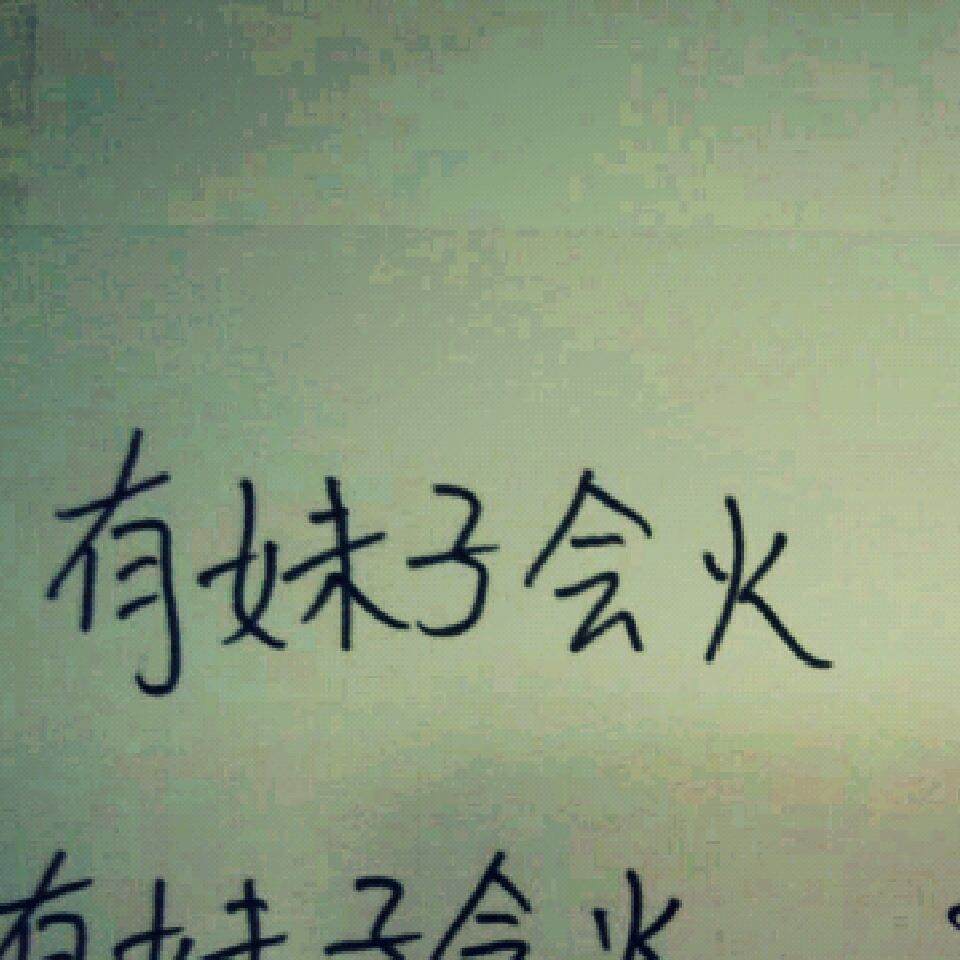 有妹子会火
有妹子会火